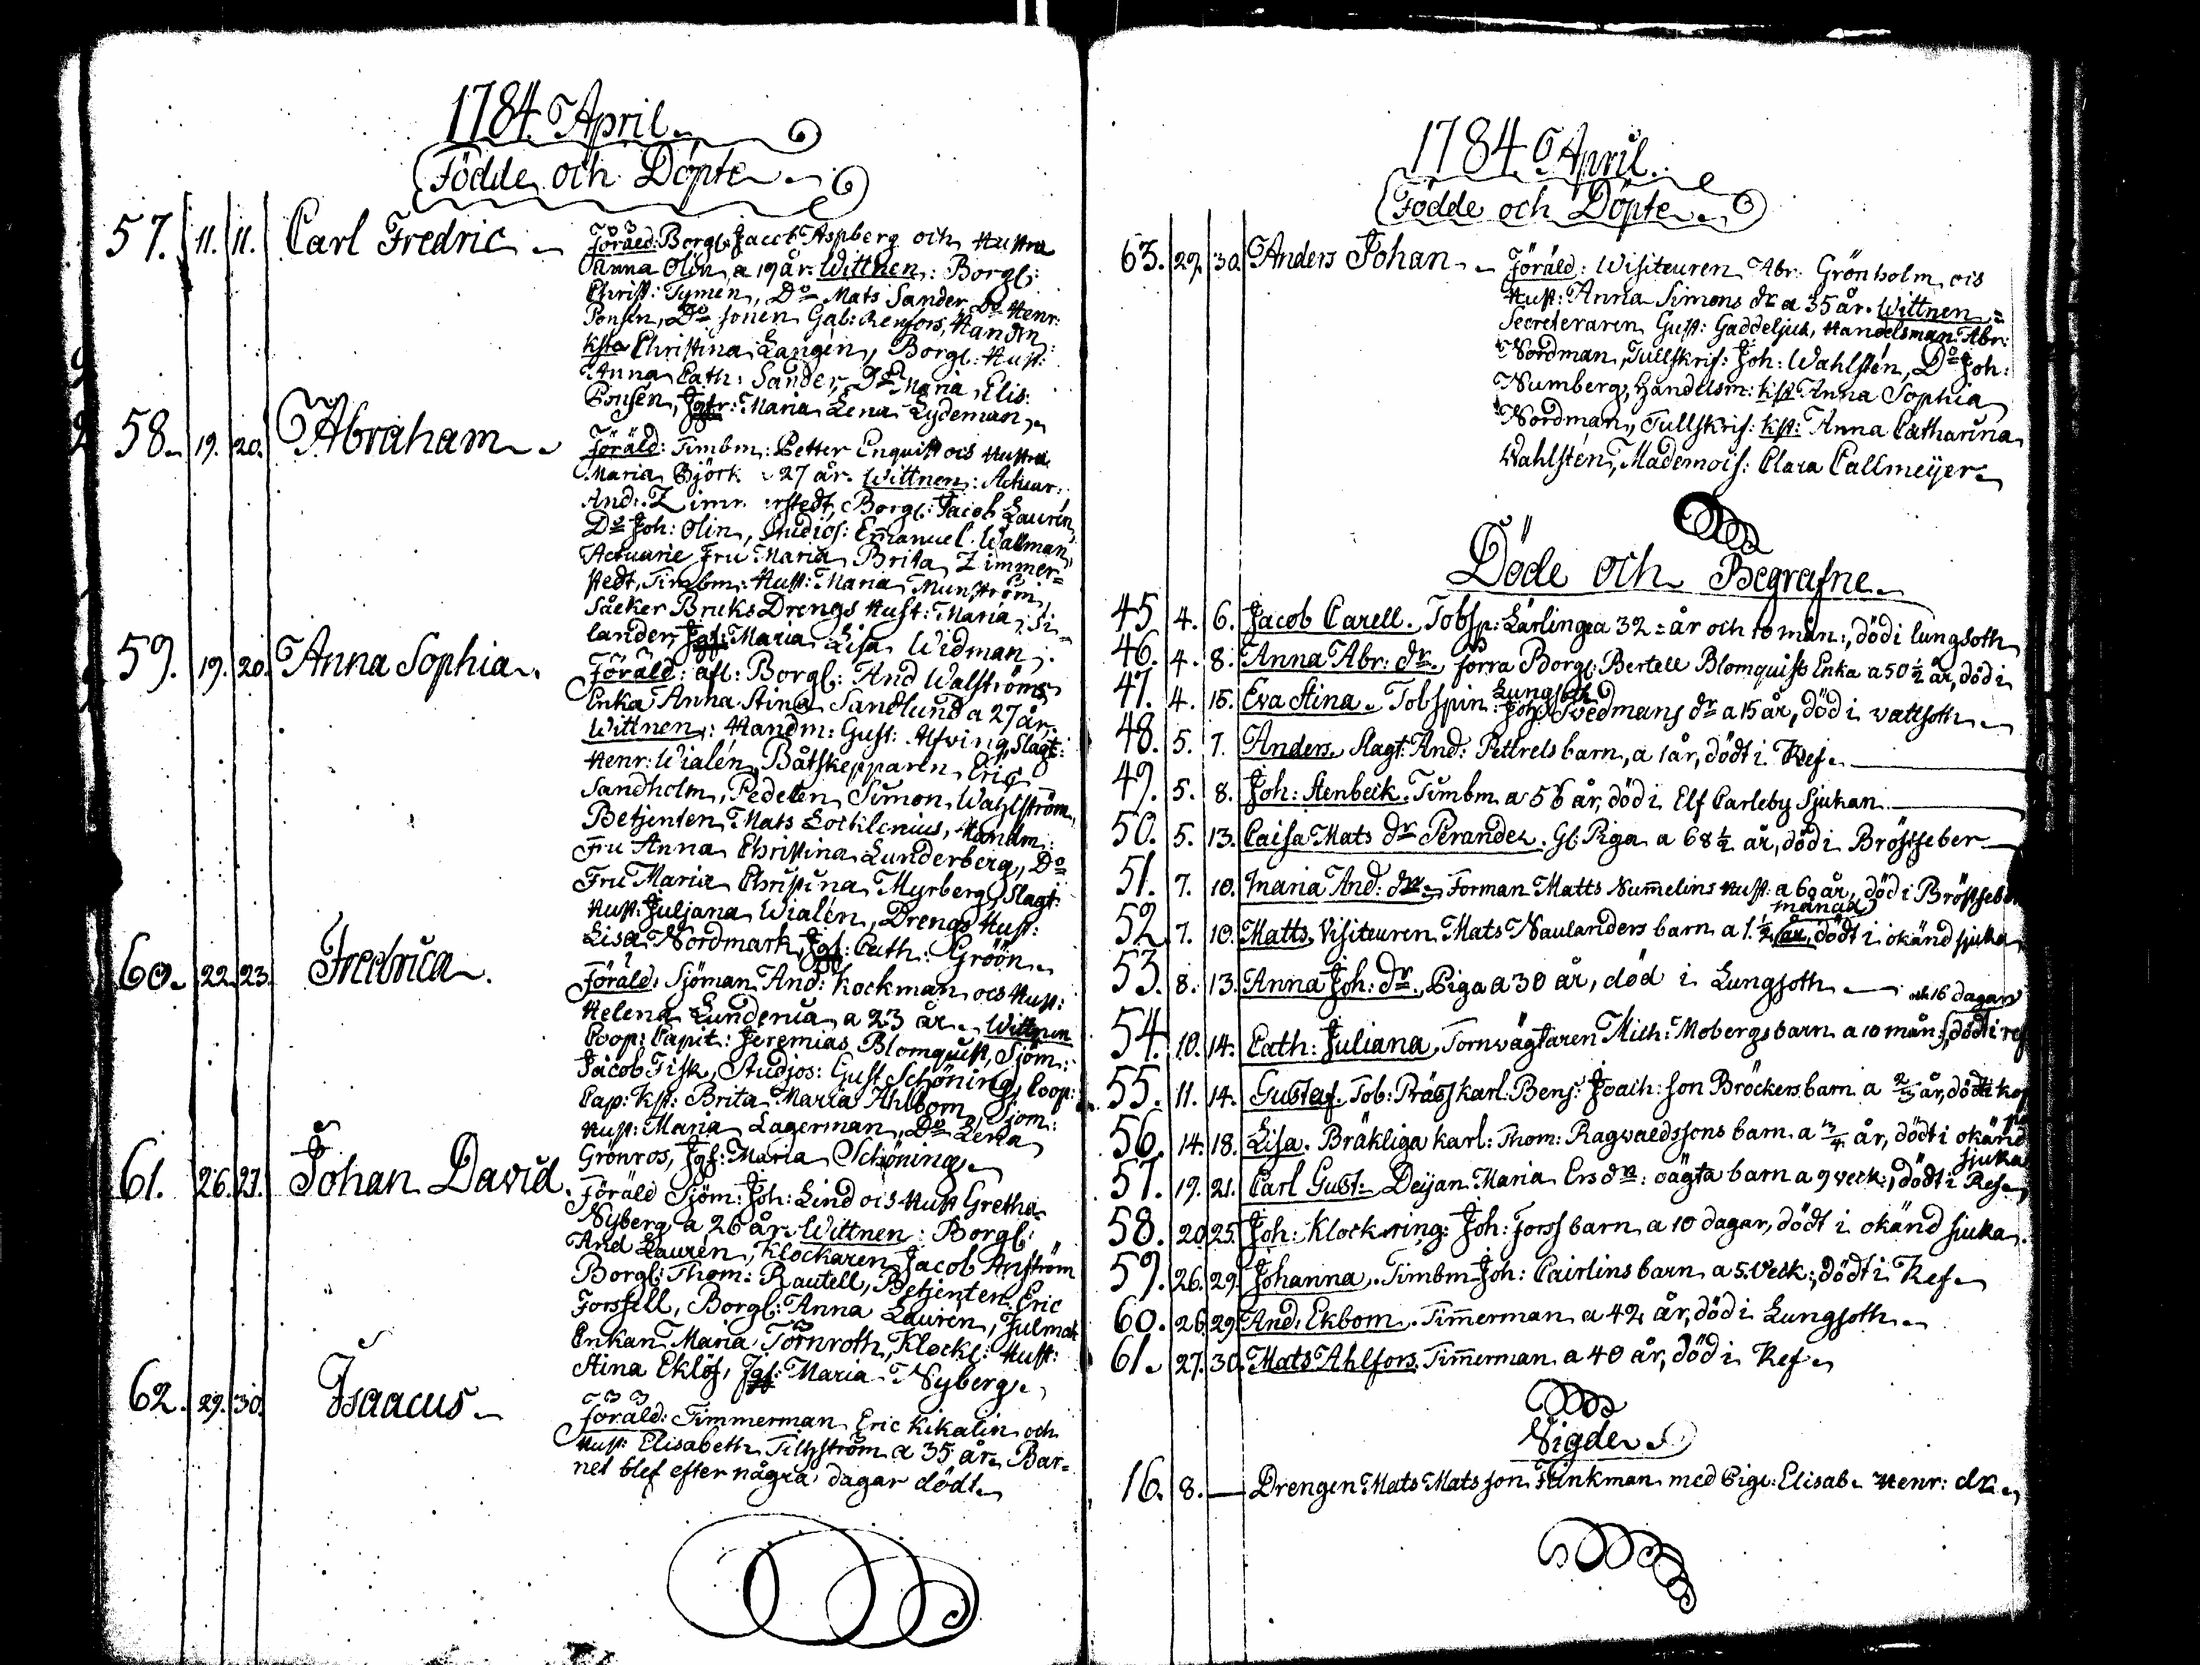 1784. April.
Födde och Döpte.
57. 11. 11. Carl Fredric.
Föräld: Borgl: Jacob Aspberg och Hustru
Anna Olin a 19 år. Wittnen: Borgl:
Christ: Tymén, Do Mats Sander, Do Henr:
Ponsén, Do Gab: Renfors, Handn:
Christina Langén, Borgl: Hust:
Anna Cath: Sander, Do Maria Elis:
Ponsén, Jgfr: Maria Lena Lydeman.
58. 19. 20. Abraham.
Föräld: Timbm: Petter Enquist och Hustru
Maria Björk 27 år. Wittnen: Actuar:
And: Zimmerstedt, Borgl: Jacob Laurén,
Do Joh: Olin, Studios: Emanuel Wallman,
Actuarie Fru Maria Brita Zimmer=
stedt, Timbm: Hust: Maria Munström,
Såcker Bruks Drengs Hust: Maria Si=
lander, Jgf: Maria Lisa Widman.
59. 19. 20. Anna Sophia.
Föräld: afl: Borgl: And Walströms
Enka Anna Stina Sandlund a 27 år.
Wittnen: Handm: Gust: Alfving, Slagt:
Henr: Wialén, Båtskepparen Eric
Sandholm, Pedelen Simon Wahlström,
Betjenten Mats Locklenius, Handm:
Fru Anna Christina Lunderberg, Do
Fru Maria Christina Myrberg, Slagt:
Hust: Juljana Wialén, Drengs Hust:
Lisa Nordmark, Jgf: Cath: Gröön.
60. 22. 23. Fredrica.
Föräld: Sjöman And: Kockman och Hust:
Helena Lundenia a 23 år. Wittnen
Coop: Capit: Jeremias Blomquist, Sjöm:
Jacob Fisk, Studjos: Gust Schöning, Coop:
Cap: Kst: Brita Maria Ahlbom, Sjöm:
Hust: Maria Lagerman, Do Lena
Grönros, Jgf: Maria Schöning.
61. 26. 27. Johan David.
Föräld Sjöm: Joh: Lind och Hust Gretha
Nyberg a 26 år. Wittnen: Borgl:
And Laurén, Klockaren Jacob Anström
Borgl: Thom: Rautell, Betjenten Eric
Forssell, Borgl: Anna Laurén,
Enkan Maria Törnroth, Klock: Hust:
Stina Eklöf, Jgf: Maria Nyberg.
62. 29. 30. Isaacus.
Föräld: Timmerman Eric Kikalin och
Hust: Elisabeth Tiltzström a 35 år. Bar=
net blef efter några dagar dödt.
1784 April.
Födde och Döpte.
63. 29. 30. Anders Johan.
Föräld: Visiteuren Abr: Grönholm och
Hust: Anna Simons dr a 35 år. Wittnen =
Secreteraren Gust: Gaddeljus, Handelsman Abr:
Nordman, Tullskrif: Joh: Wahlstén, Do Joh:
Numberg, Handelsm: Kst Anna Sophia
Nordman, Tullskrif: Kst: Anna Catharina
Wahlstén, Mademois: Clara Callmeyer.
Döde och Begrafne.
45 4. 6. Jacob Carell. Tobsp: Lärling a 32 = år och 10 mån:, död i lungsoth
46. 4. 8. Anna Abr: dr. förra Borgl: Bertell Blomquists Enka a 50 1/2 år, död i
Lungsoth
47. 4. 15. Eva Stina. Tobspin: Joh: Svedmans dr a 15 år, död i vattsoth
48. 5. 7. Anders. Slagt: And: Pettrels barn, a 1 år, dödt i Ref.
49. 5. 8. Joh: Stenbeck. Timbm a 56 år, död i Elf Carleby Sjukan
50. 5. 13. Caisa Mats dr Perander. Gl: Piga a 68 1/2 år, död i Bröstfeber
51. 7. 10. Maria And: dr. Forman Matts Nummelins Hust: a 60 år, död i Bröstfeber
månad
52 7. 10. Matts, Visiteuren Mats Naulanders barn a 1 1/2 år, dödt i okänd sjuka
53. 8. 13. Anna Joh: dr. Piga a 30 år, död i Lungsoth
och 16 dagar
54. 10. 14. Cath: Juliana, Tornvägtaren Mich: Mobergs barn a 10 mån:, dödt i ref
55. 11. 14. Gustaf. Tob: Präss karl: Benj: Joach: son Bröckers barn a 2/3 år, dödt i
56. 14. 18. Lisa. Bräkliga karl: Thom: Ragvaldssons barn a 3/4 år, dödt i okänd
sjuka
57. 19. 21. Carl Gust: Deijan Maria Ers dr: oägta barn a 9 veck:, dödt i Ref.
58. 20. 25. Joh: Klockring: Joh: Forss barn a 10 dagar, dödt i okänd sjuka.
59. 26. 29. Johanna. Timbm Joh: Cairlins barn a 5. Veck:, dödt i Ref.
60. 26. 29. And: Ekbom. Timmerman a 42 år, död i Lungsoth.
61. 27. 30. Mats Ahlfors. Timmerman a 40 år, död i Ref.
Vigde.
16. 8. Drengen Mats Mats son Finkman med Pig: Elisab. Henr: dr.